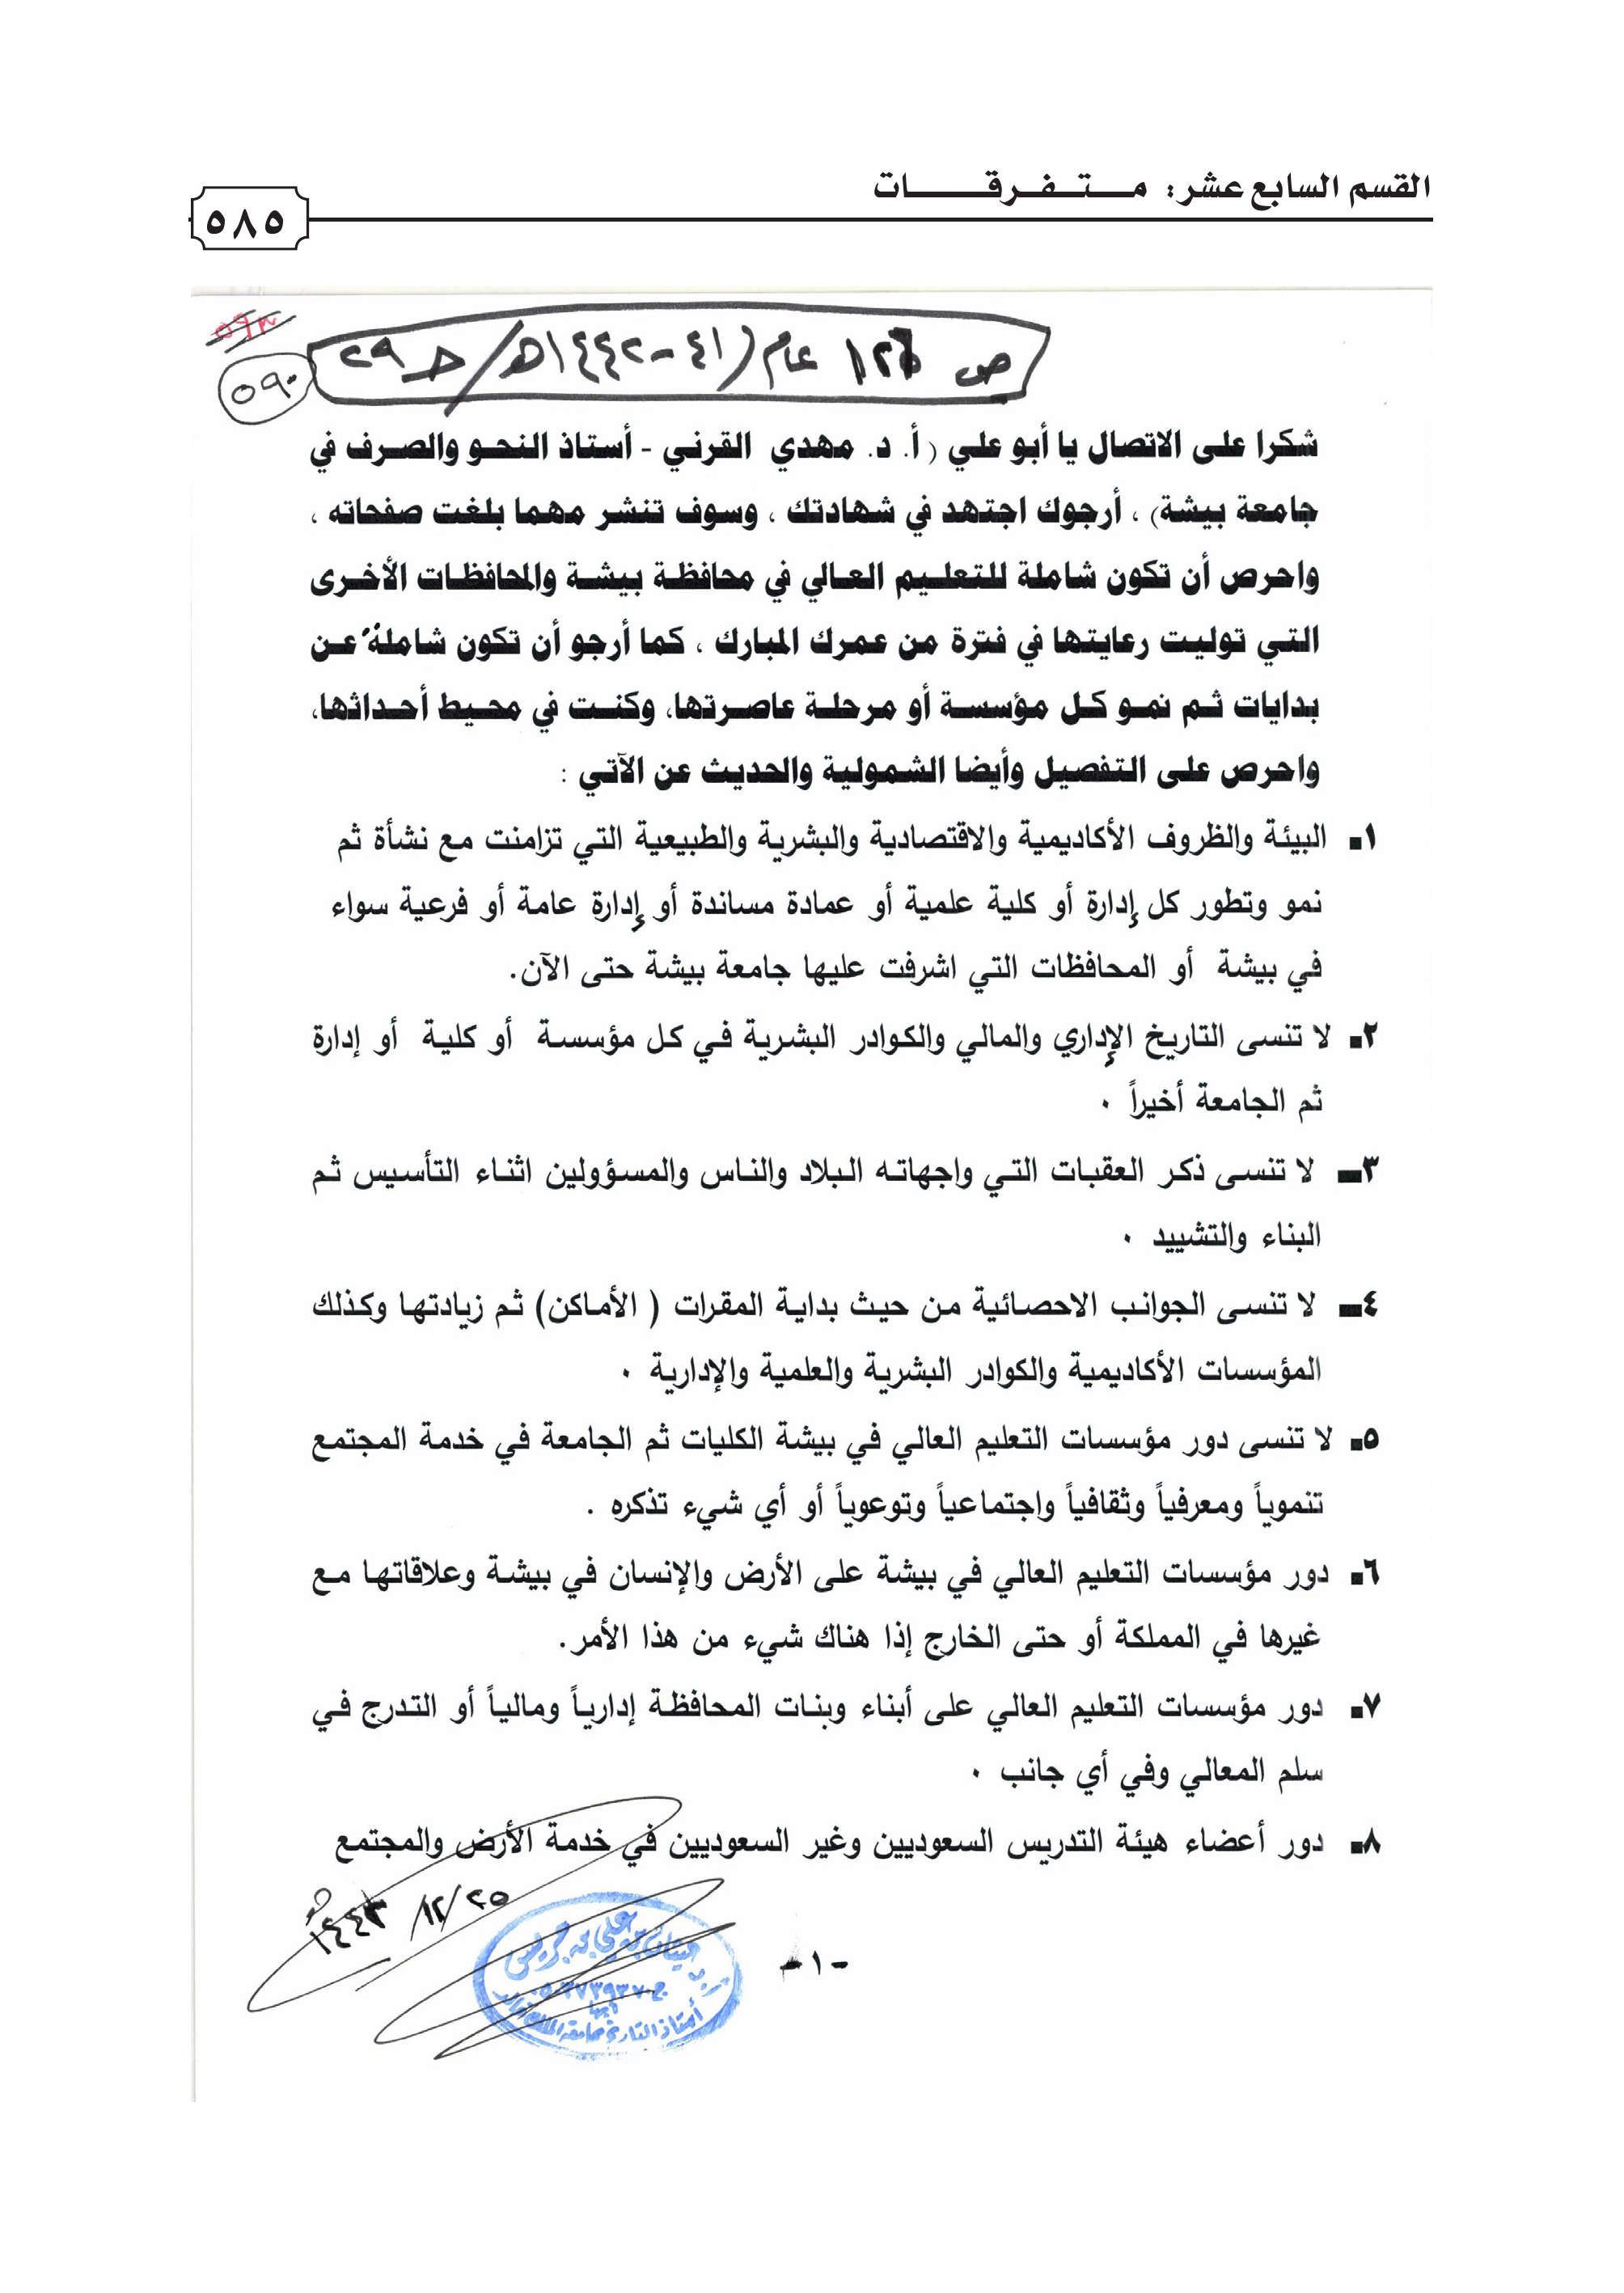 القسم السابع عشر: متفرقات
٥٨٥
ص ١٢٦ عام (٤١-١٤٤٢هـ/ حـ ٢٩
٥٩٠
شكرا على الاتصال يا أبو علي ( أ. د. مهدي القرني - أستاذ النحو والصرف في
جامعة بيشة) ، أرجوك اجتهد في شهادتك ، وسوف تنشر مهما بلغت صفحاته ،
واحرص أن تكون شاملة للتعليم العالي في محافظة بيشة والمحافظات الأخرى
التي توليت رعايتها في فترة من عمرك المبارك ، كما أرجو أن تكون شاملة عن
بدايات ثم نمو كل مؤسسة أو مرحلة عاصرتها، وكنت في محيط أحداثها،
واحرص على التفصيل وأيضا الشمولية والحديث عن الآتي :
١- البيئة والظروف الأكاديمية والاقتصادية والبشرية والطبيعية التي تزامنت مع نشأة ثم
نمو وتطور كل إدارة أو كلية علمية أو عمادة مساندة أو إدارة عامة أو فرعية سواء
في بيشة أو المحافظات التي اشرفت عليها جامعة بيشة حتى الآن.
٢- لا تنسى التاريخ الإداري والمالي والكوادر البشرية في كل مؤسسة أو كلية أو إدارة
ثم الجامعة أخيراً ٠
٣- لا تنسى ذكر العقبات التي واجهاته البلاد والناس والمسؤولين اثناء التأسيس ثم
البناء والتشييد ٠
٤- لا تنسى الجوانب الاحصائية من حيث بداية المقرات ( الأماكن) ثم زيادتها وكذلك
المؤسسات الأكاديمية والكوادر البشرية والعلمية والإدارية ٠
٥- لا تنسى دور مؤسسات التعليم العالي في بيشة الكليات ثم الجامعة في خدمة المجتمع
تنموياً ومعرفياً وثقافياً واجتماعياً وتوعوياً أو أي شيء تذكره .
٦- دور مؤسسات التعليم العالي في بيشة على الأرض والإنسان في بيشة وعلاقاتها مع
غيرها في المملكة أو حتى الخارج إذا هناك شيء من هذا الأمر.
٧- دور مؤسسات التعليم العالي على أبناء وبنات المحافظة إدارياً ومالياً أو التدرج في
سلم المعالي وفي أي جانب ٠
٨- دور أعضاء هيئة التدريس السعوديين وغير السعوديين في خدمة الأرض والمجتمع
٢٥/ ١٢/ ١٤٤٣هـ
بن علي بن جريس
أبها
أستاذ التاريخ بجامعة الملك خالد
-١-